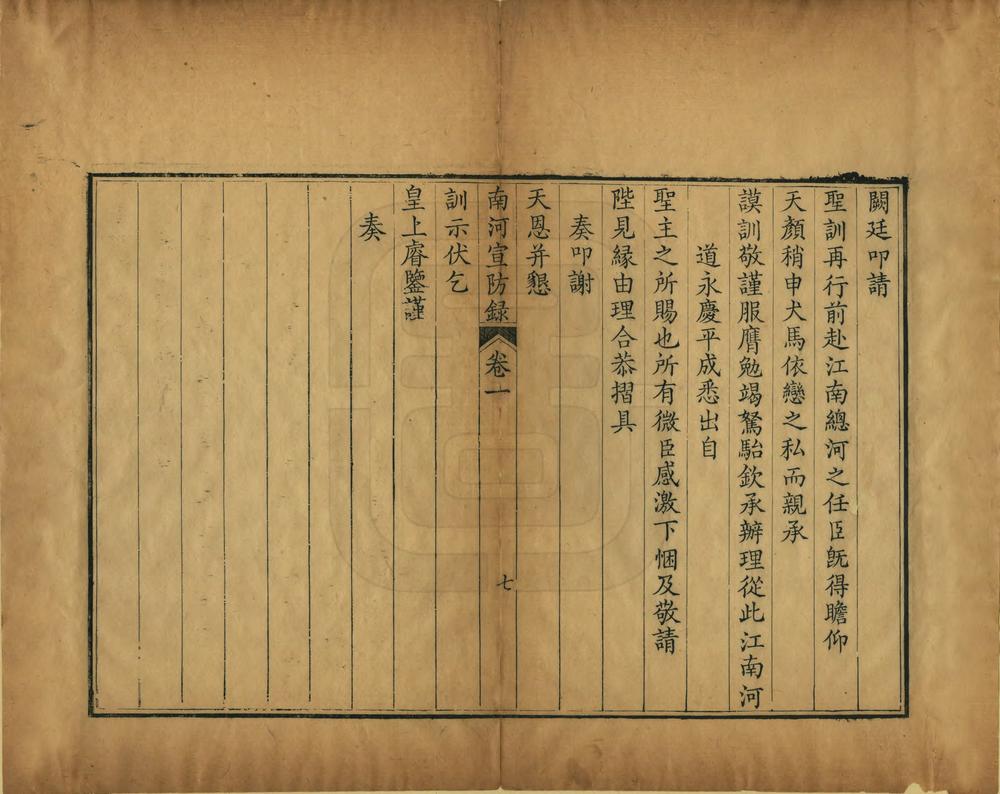 闕廷叩請
聖訓再行前赴江南總河之任臣旣得瞻仰
天顏稍申犬馬依戀之私而親承
謨訓敬謹服膺勉竭駑駘欽承辦理從此江南河
道永慶平成悉出自
聖主之所賜也所有微臣感激下悃及敬請
陛見緣由理合恭摺具
奏叩謝
天恩并懇
南河宣防録
卷一
七
訓示伏乞
皇上睿鑒謹
奏